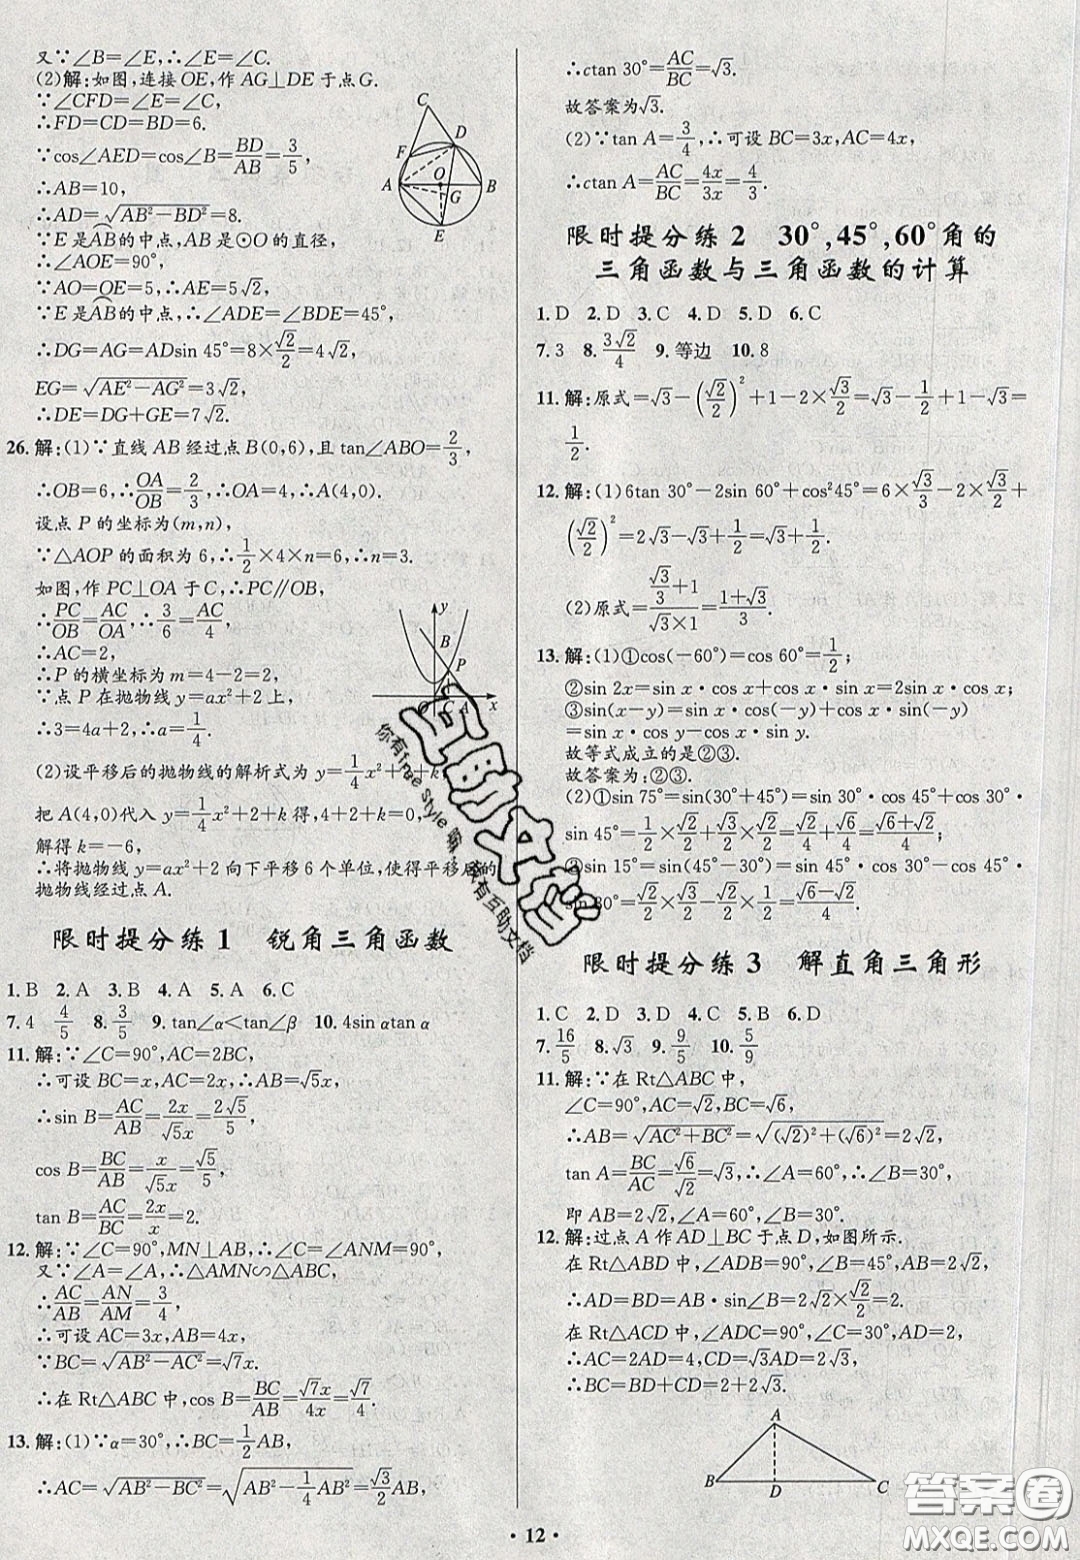 又∵∠B=∠E,∴∠E=∠C.
(2)解:如图,连接OE,作AG⊥DE于点G.
∵∠CFD=∠E=∠C,
∴FD=CD=BD=6.
∵cos∠AED=cos∠B=BD/AB=3/5,
∴AB=10,
∴AD=√(AB²-BD²)=8.
∵E是AB的中点,AB是⊙O的直径,
∴∠AOE=90°,
∵AO=OE=5,∴AE=5√2,
∵E是AB的中点,∴∠ADE=∠BDE=45°,
∴DG=AG=ADsin 45°=8×√2/2=4√2,
EG=√(AE²-AG²)=3√2,
∴DE=DG+GE=7√2.
C
D
F
A
O
B
G
E
26.解:(1)∵直线AB经过点B(0,6),且tan∠ABO=2/3,
∴OB=6,∴OA/OB=2/3,∴OA=4,∴A(4,0).
设点P的坐标为(m,n),
∵△AOP的面积为6,∴1/2×4×n=6,∴n=3.
如图,作PC⊥OA于C,∴PC∥OB,
∴PC/OB=AC/OA,∴3/6=AC/4,
∴AC=2,
∴P的横坐标为m=4-2=2,
∵点P在抛物线y=ax²+2上,
∴3=4a+2,∴a=1/4.
y
B
P
O C A x
(2)设平移后的抛物线的解析式为y=1/4x²+2+k
把A(4,0)代入y=1/4x²+2+k得,4+2+k=0,
解得k=-6,
∴将抛物线y=ax²+2向下平移6个单位,使得平移后的
抛物线经过点A.
限时提分练1 锐角三角函数
1.B 2.A 3.B 4.A 5.A 6.C
7.4 4/5 8.3/5 9.tan∠α<tan∠β 10.4sin αtan α
11.解:∵∠C=90°,AC=2BC,
∴可设BC=x,AC=2x,∴AB=√5x,
∴sin B=AC/AB=2x/√5x=2√5/5,
cos B=BC/AB=x/√5x=√5/5,
tan B=AC/BC=2x/x=2.
12.解:∵∠C=90°,MN⊥AB,∴∠C=∠ANM=90°,
又∵∠A=∠A,∴△AMN∽△ABC,
∴AC/AB=AN/AM=3/4,
∴可设AC=3x,AB=4x,
∵BC=√(AB²-AC²)=√7x.
∴在Rt△ABC中,cos B=BC/AB=√7x/4x=√7/4.
13.解:(1)∵α=30°,∴BC=1/2AB,
∴AC=√(AB²-BC²)=√(AB²-1/4AB²)=√3/2AB,
∴ctan 30°=AC/BC=√3.
故答案为√3.
(2)∵tan A=3/4,∴可设BC=3x,AC=4x,
∴ctan A=AC/BC=4x/3x=4/3.
限时提分练2 30°,45°,60°角的
三角函数与三角函数的计算
1.D 2.D 3.C 4.D 5.D 6.C
7.3 8.3√2/4 9.等边 10.8
11.解:原式=√3-(√2/2)²+1-2×√3/2=√3-1/2+1-√3=
1/2.
12.解:(1)6tan 30°-2sin 60°+cos²45°=6×√3/3-2×√3/2+
(√2/2)²=2√3-√3+1/2=√3+1/2;
(2)原式=(√3/3+1)/(√3×1)=(1+√3)/3.
13.解:(1)①cos(-60°)=cos 60°=1/2;
②sin 2x=sin x·cos x+cos x·sin x=2sin x·cos x;
③sin(x-y)=sin x·cos(-y)+cos x·sin(-y)
=sin x·cos y-cos x·sin y.
故等式成立的是②③.
故答案为:②③.
(2)①sin 75°=sin(30°+45°)=sin 30°·cos 45°+cos 30°·
sin 45°=1/2×√2/2+√3/2×√2/2=√2/4+√6/4=(√6+√2)/4;
②sin 15°=sin(45°-30°)=sin 45°·cos 30°-cos 45°·
sin 30°=√2/2×√3/2-√2/2×1/2=(√6-√2)/4.
限时提分练3 解直角三角形
1.C 2.D 3.D 4.D 5.B 6.D
7.16/5 8.√3 9.9/5 10.5/9
11.解:∵在Rt△ABC中,
∠C=90°,AC=√2,BC=√6,
∴AB=√(AC²+BC²)=√((√2)²+(√6)²)=2√2,
tan A=BC/AC=√6/√2=√3,∴∠A=60°,∴∠B=30°,
即AB=2√2,∠A=60°,∠B=30°.
12.解:过点A作AD⊥BC于点D,如图所示.
在Rt△ABD中,∠ADB=90°,∠B=45°,AB=2√2,
∴AD=BD=AB·sin∠B=2√2×√2/2=2.
在Rt△ACD中,∠ADC=90°,∠C=30°,
∴AC=2AD=4,CD=√3AD=2√3,
∴BC=BD+CD=2+2√3.
A
B
D
C
·12·
互助文档
你有true style 嘛,我有互助文档
答案圈
MXQE.COM